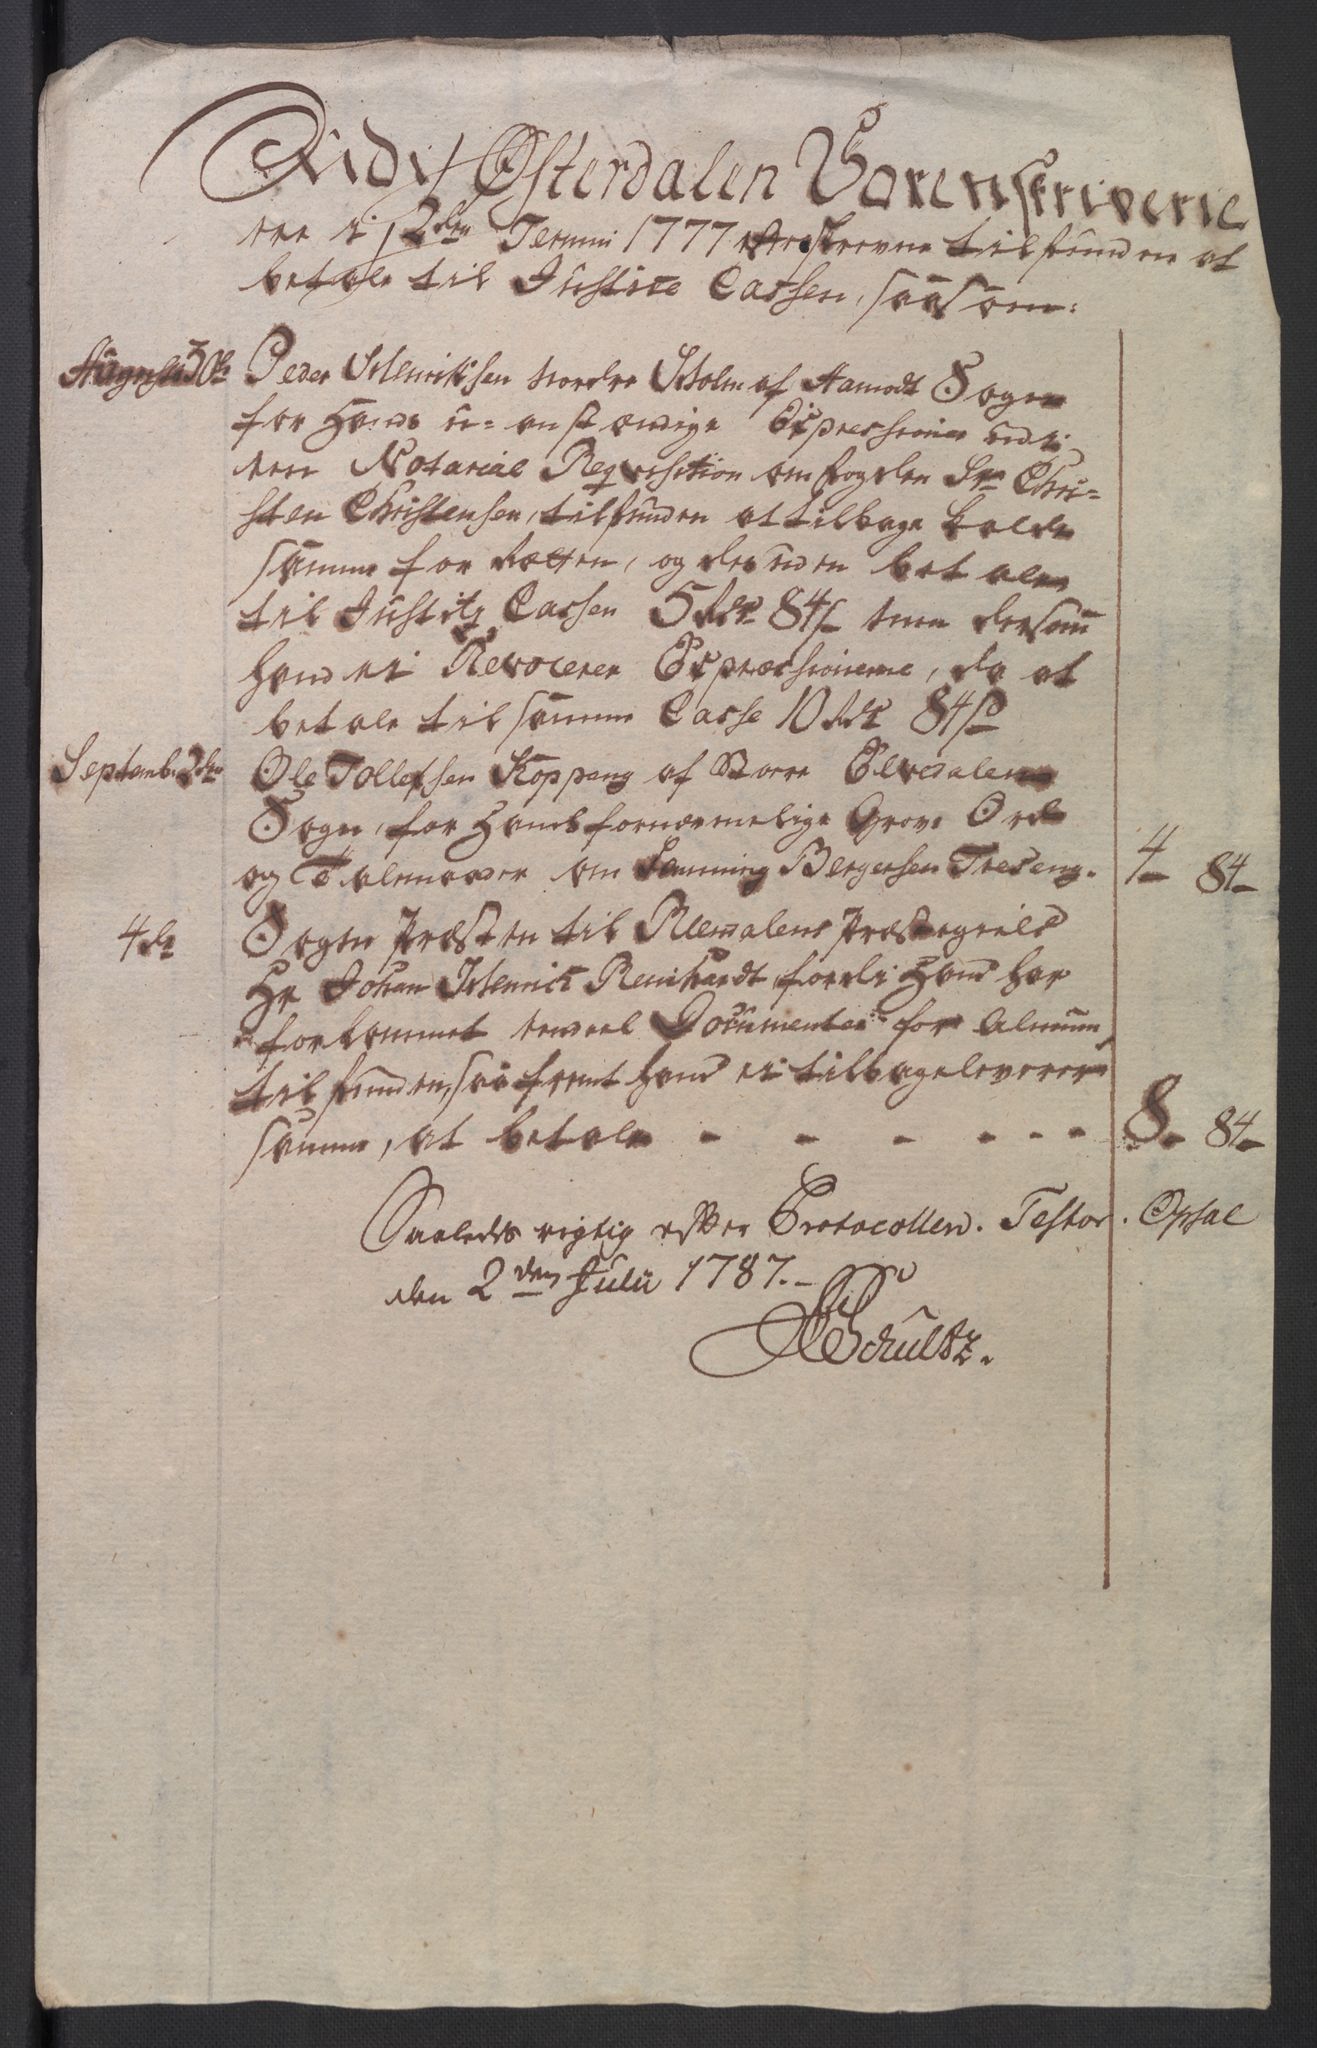 Udi Østerdalen Sorenskriverie
ere i 2den Termin 1777 efterskrevne tilfunden at
betale til Justice Cassen, saasom:
Augusti 30te Peder Hlenrichsen nordre Holm af Aamodt Sogn
for Hands u-anstændige Expressioner udi
een Notarial Reqvisition om fogden Sr. Chri-
sten Christensen, tilfunden at tilbage kalde
samme for Retten, og desuden betale
til Justitz Cassen 5 rdr 84 s men dersom
hand ei Revocerer Expressionerne, da at
betale til samme Casse 10 rdr 84 s
Septemb. 2den Ole Tollefsen Koppang af Store Elvedalens
Sogn, for Hands fornærmelige Grove Ord
og Talemaader om Hemming Bergersen Treseng. 4 - 84 -
4de Sogne Præsten til Rendalens Præstegield
Hr Johan Henrich Reinhardt, fordi Hand har
forkommet eendeel Documenter for Almuen,
tilfunden, saafremt hand ei tilbageleverer
samme, at betale - - - - - - 8 - 84 -
Saaledes rigtig efter Protocollen. Testor. Opsal
den 2den Julii 1787. -
Schultz.